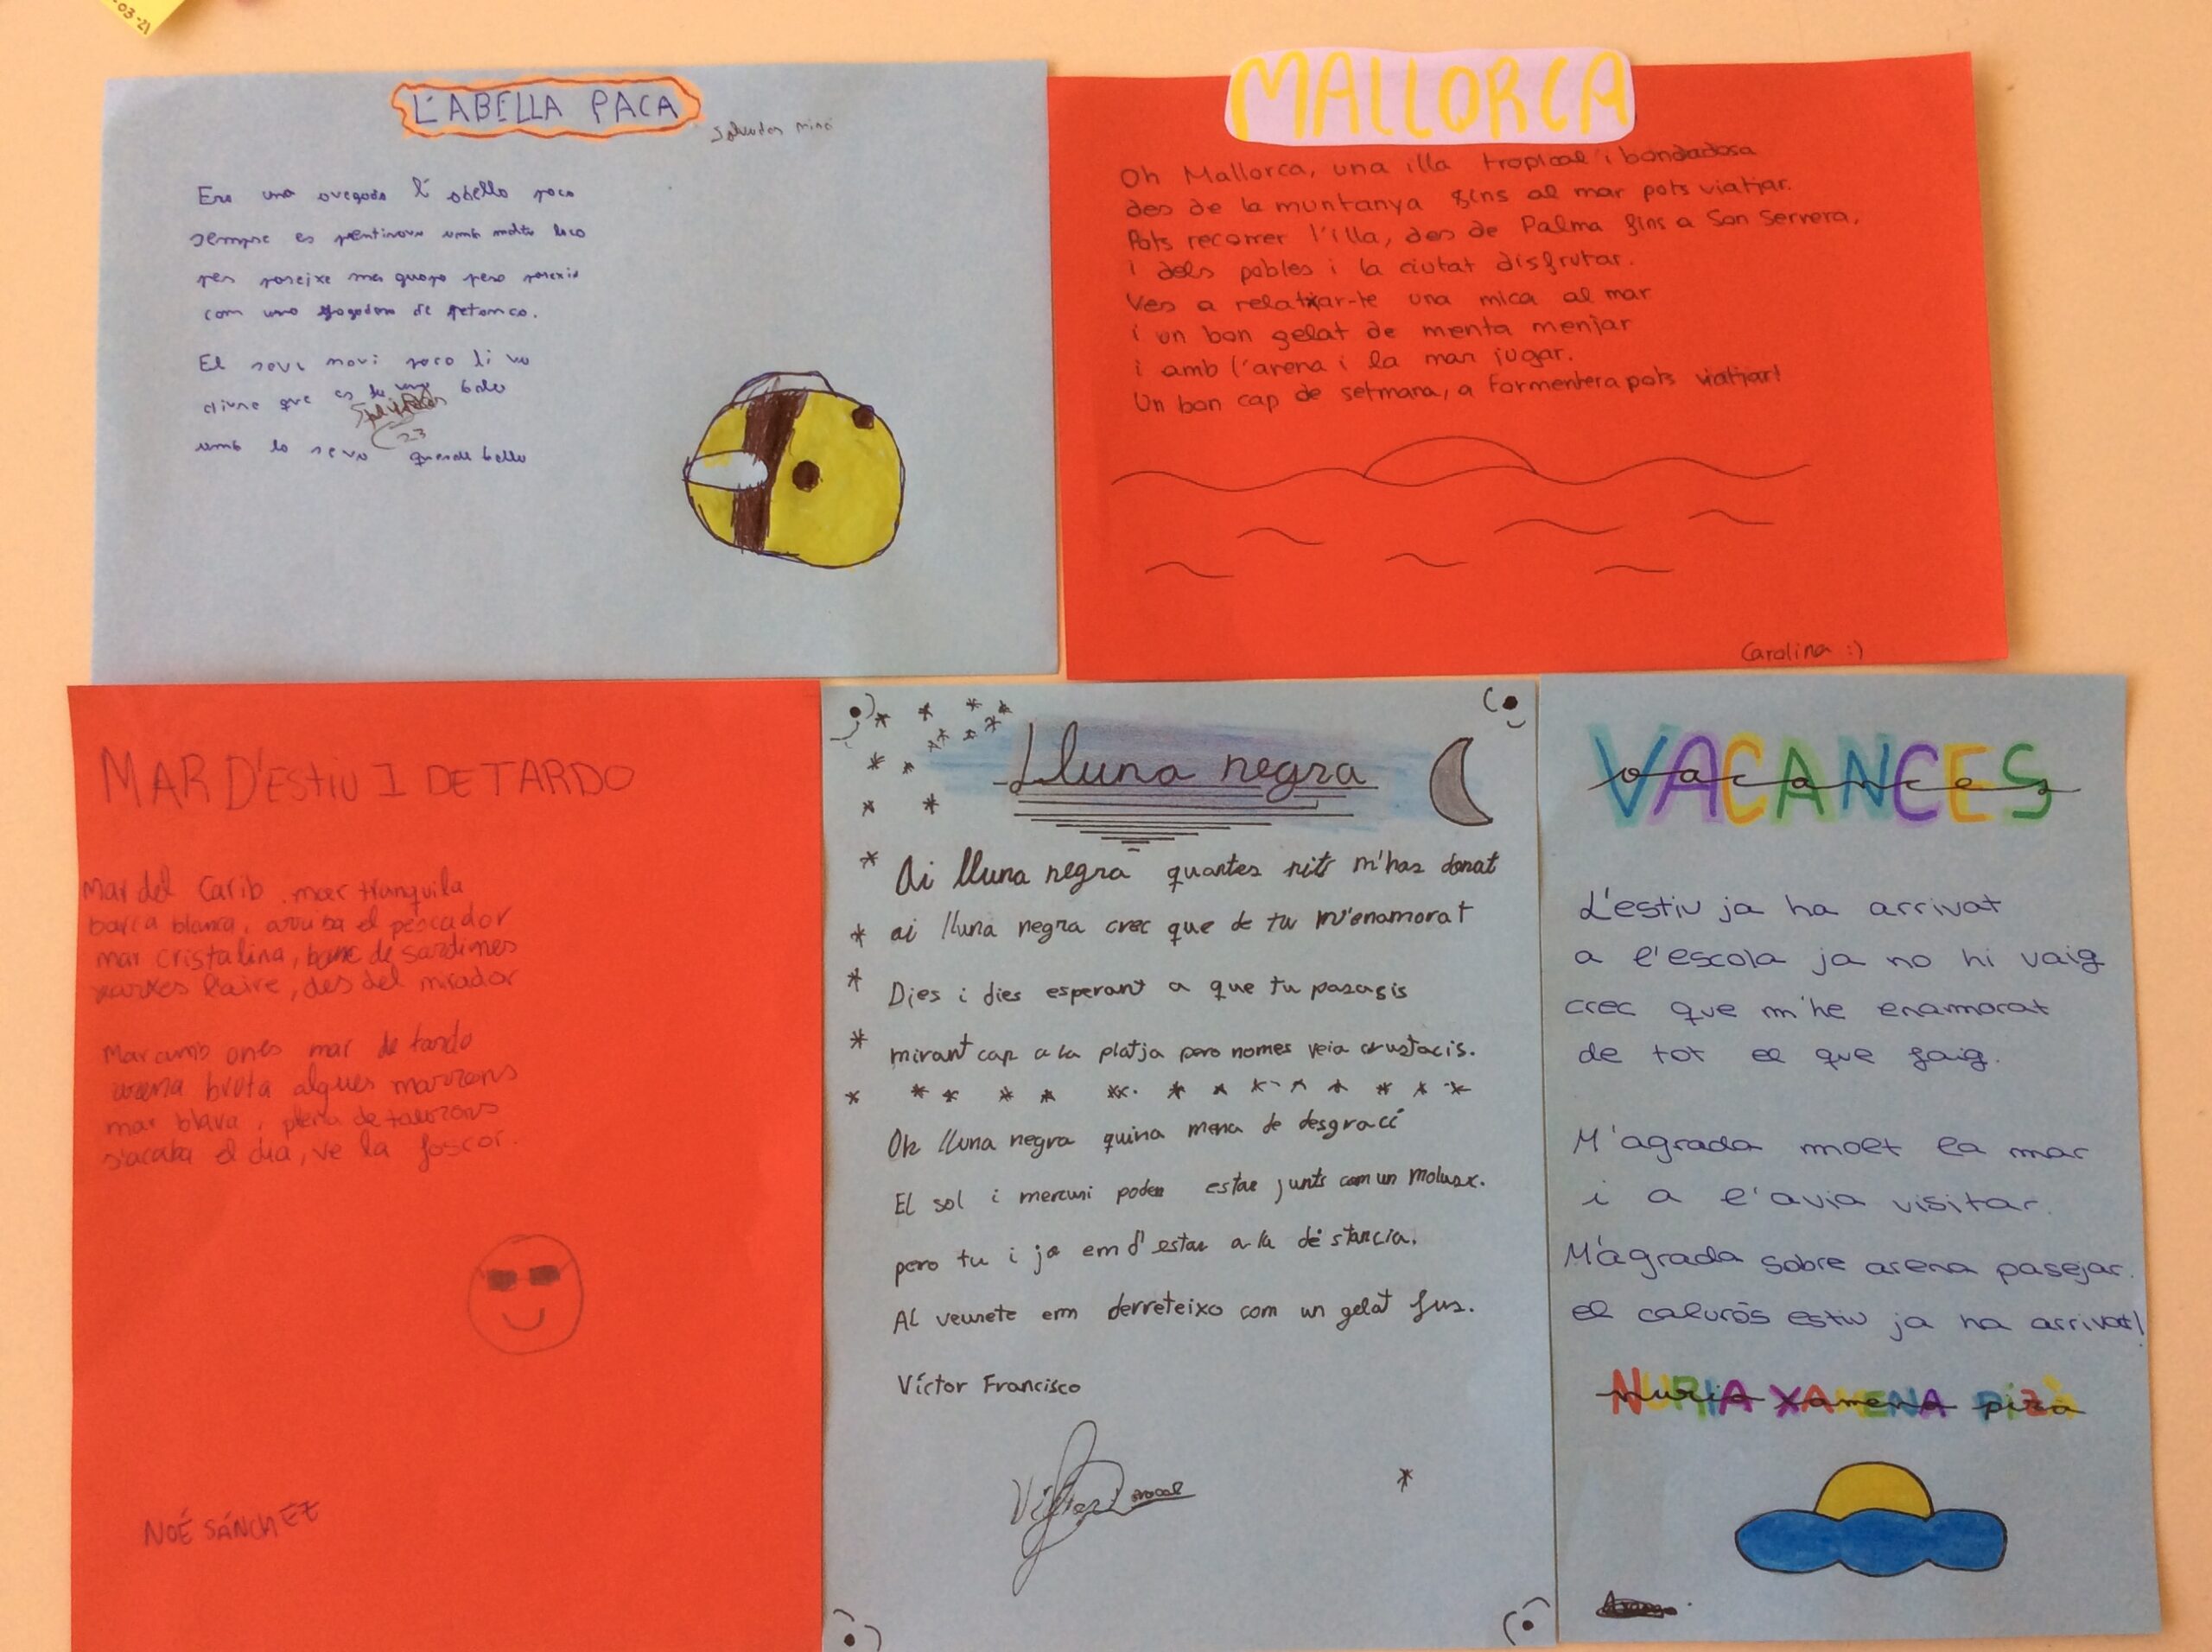 03-21
L'ABELLA PACA
Salvador miró
Era una avegada l'abella paca
sempre es pentinava amb molta laca
per pareixe mes guapa pero pareixia
com una jogadora de petanca.
El seu novi paco li va
diure que es la mes bella
amb la seva grande bella
23
MALLORCA
Oh Mallorca, una illa tropical i bondadosa
des de la muntanya fins al mar pots viatjar.
Pots recorrer l'illa, des de Palma fins a Son Servera,
i dels pobles i la ciutat disfrutar.
Ves a relatxar-te una mica al mar
i un bon gelat de menta menjar
i amb l'arena i la mar jugar.
Un bon cap de setmana, a formentera pots viatjar!
Carolina :)
MAR D'ESTIU I DE TARDO
Mar del Carib, mar tranquila
barca blanca, arriba el pescador
mar cristalina, banc de sardines
l'aire, des del mirador
Mar amb ones mar de tardo
arena bruta algues marrons
mar blava, plena de taurons
s'acaba el dia, ve la foscor.
NOÉ SÁNCHEZ
Lluna negra
Ai lluna negra quantes nits m'has donat
ai lluna negra crec que de tu m'enamorat
Dies i dies esperant a que tu pasasis
mirant cap a la platja pero nomes veia crustacis.
Oh lluna negra quina mena de desgraci
El sol i mercuri poden estar junts com un molusc.
pero tu i jo em d'estar a la distancia.
Al veurete em derreteixo com un gelat fus.
Víctor Francisco
VACANCES
vacances
L'estiu ja ha arrivat
a l'escola ja no hi vaig
crec que m'he enamorat
de tot el que faig.
M'agrada molt la mar
i a l'avia visitar.
M'agrada sobre arena pasejar.
el calurós estiu ja ha arrivat!
NURIA XAMENA PIZÀ
nuria xamena pizà